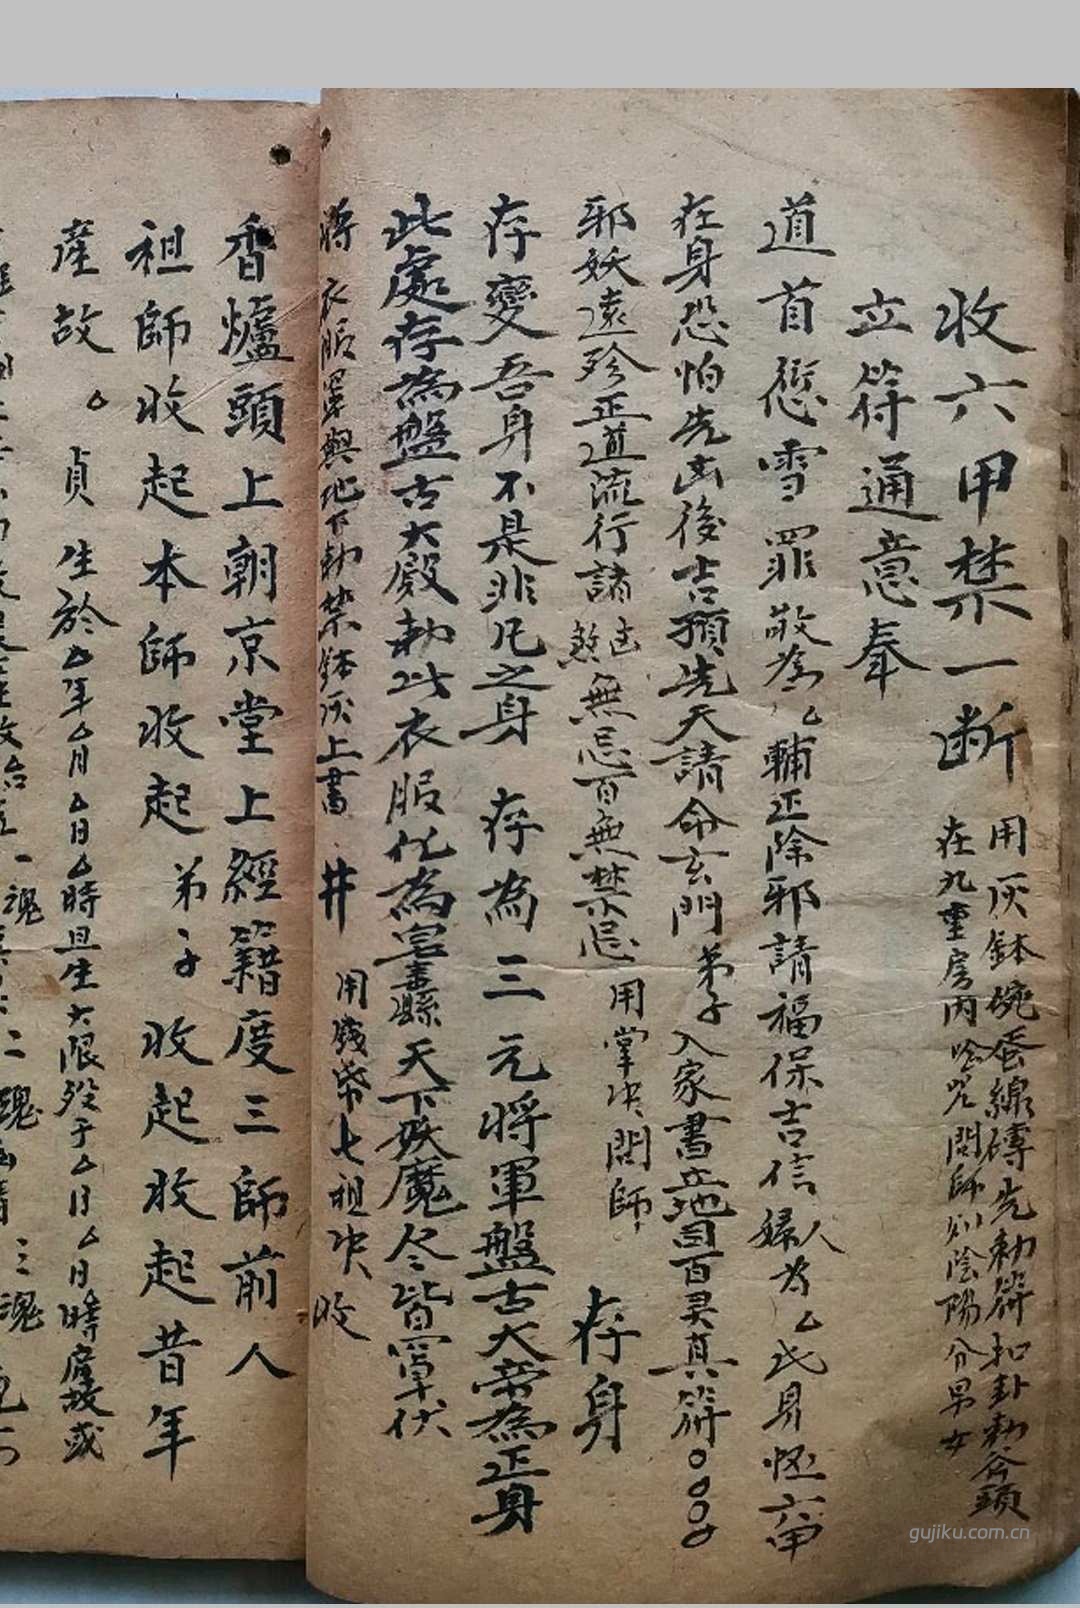 收六甲禁一断
用灰鉢碗蚕線磚先勅符扣卦勅斧頭
在九重房内唸咒問師刈陰陽分男女
立符通意奉
道首愆雪罪敬為厶輔正除邪請福保吉信婦人為厶氏身怪六甲
在身恐怕先凶後吉預先天請命玄門弟子入家書立地司百灵真符
邪妖遠殄正道流行諸凶煞無忌百無禁忌 用掌决問師 存身
存變吾身不是非凡之身 存為三元將軍盤古大帝為正身
此處存為盤古大殿勅此衣服化為 天下妖魔尽皆罩伏
將衣服罩與地下勅禁鉢灰上書井 用錢 七祖决收
香爐頭上朝京堂上經籍度三師前人
祖師收起本師收起弟子收起收起昔年
產故厶貞生於厶年厶月厶日厶時且生大限殁于厶月厶日時產故或
一魂 二魂 三魂
gujiku.com.cn